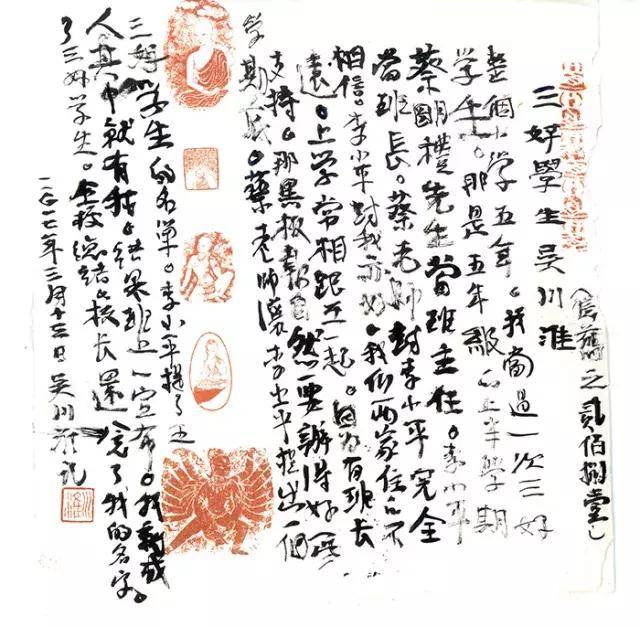 三好學生吴川淮
之贰佰捌壹
整個小学五年。我當過一次三好
学生。那是五年級的上半學期
蔡朙禮先生當班主任。李小平
當班長。蔡老师對李小平完全
相信。李小平對我亦好。我们两家住的不
遠。上学常相跟在一起。因为有班长
支持。那黑板報自然要辦得好一些
学期底。蔡老师讓李小平提出一個
三好学生的名单。李小平提了五
人。其中就有我。结果班上一宣布。我就成
了三好学生。全校总结。校长還念了我的名字。
二〇一七年三月十三日 吴川淮记